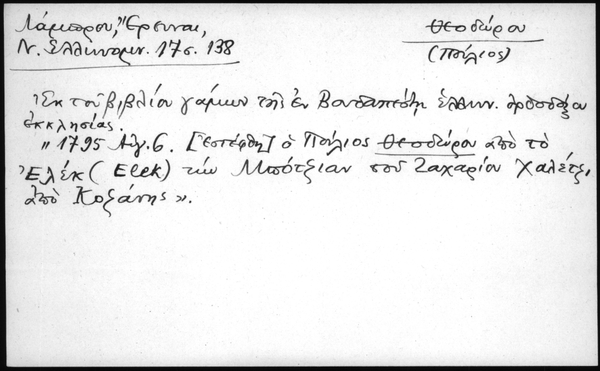 Λάμπρου, Ἔρευναι,
Ν. Ἑλληνομν. 17 σ. 138
Θεοδώρου
(Πούλιος)
"Ἐκ τοῦ βιβλίου γάμων τῆς ἐν Βουδαπέστῃ ἑλλην. ὀρθοδόξου
ἐκκλησίας.
" 1795 Αὐγ. 6. [ἐστέφθη] ὁ Πούλιος Θεοδώρου ἀπὸ τὸ
Ἐλέκ (Elek) τὴν Μπότζιαν τοῦ Ζαχαρίου Χαλέτζι,
ἀπὸ Κοζάνης".